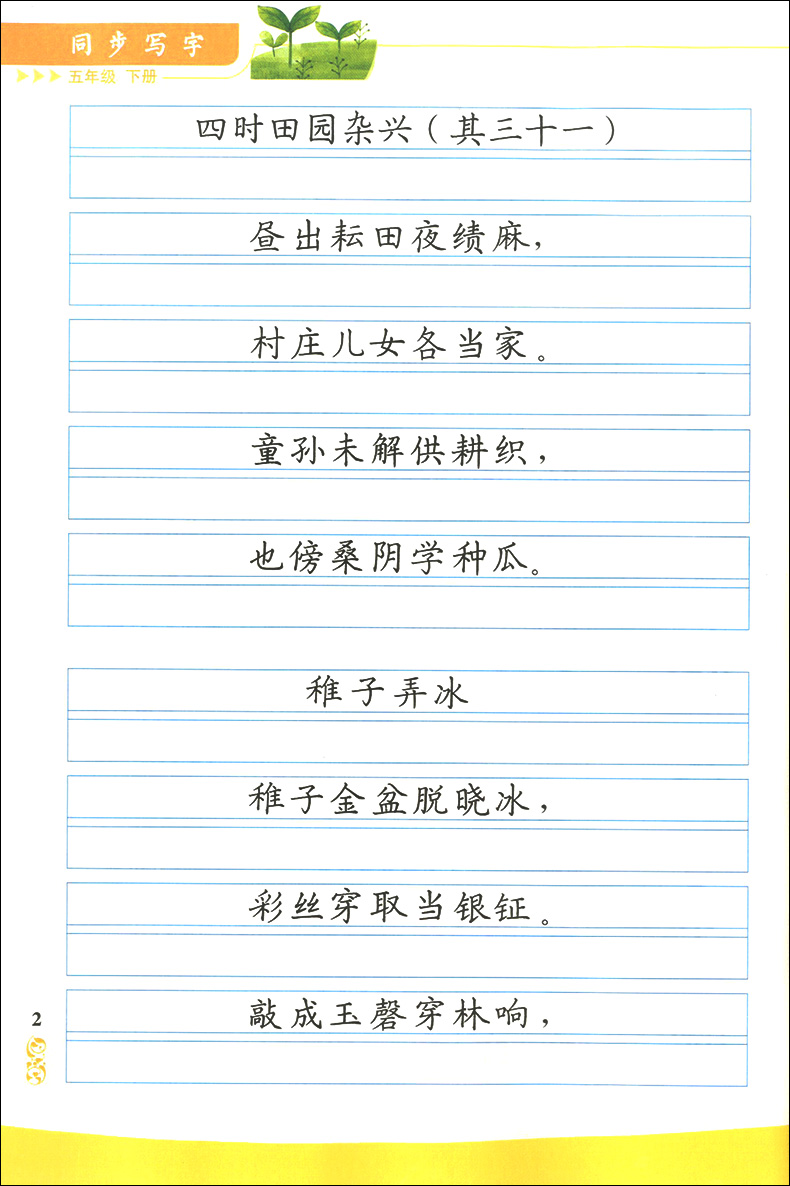 同步写字
五年级 下册
四时田园杂兴（其三十一）
昼出耘田夜绩麻，
村庄儿女各当家。
童孙未解供耕织，
也傍桑阴学种瓜。
稚子弄冰
稚子金盆脱晓冰，
彩丝穿取当银钲。
敲成玉磬穿林响，
2